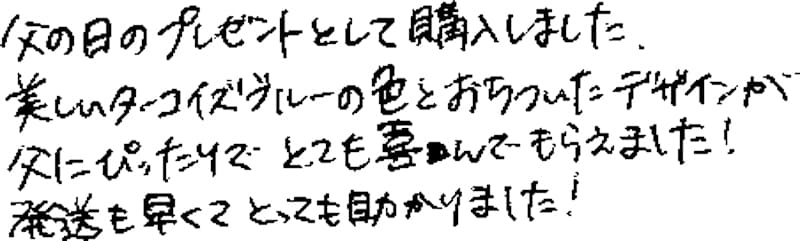 父の日のプレゼントとして購入しました.
美しいターコイズブルーの色とおちついたデザインが
父にぴったりで とても喜んでもらえました!
発送も早くてとっても助かりました!